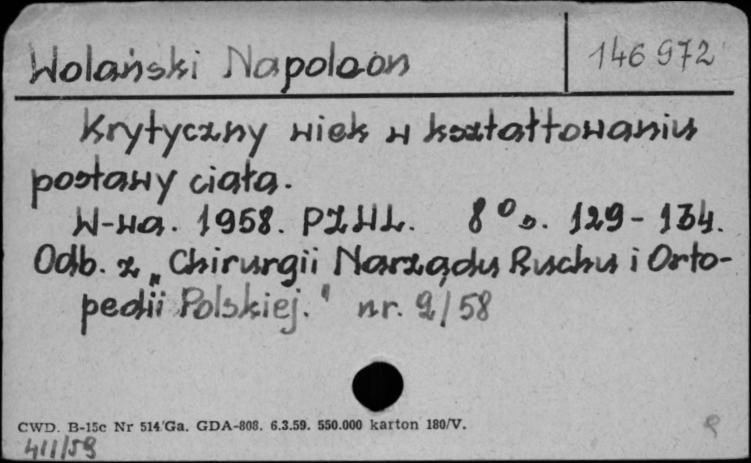 Wolański Napoleon
146 972
Krytyczny wiek w kształtowaniu
postawy ciała.
W-wa. 1958. PZWL. 8° s. 129-134.
Odb. z „Chirurgii Narządu Ruchu i Orto-
pedii Polskiej." nr. 2/58
CWD. B-15c Nr 514/Ga. GDA-808. 6.3.59. 550.000 karton 180/V.
411/59